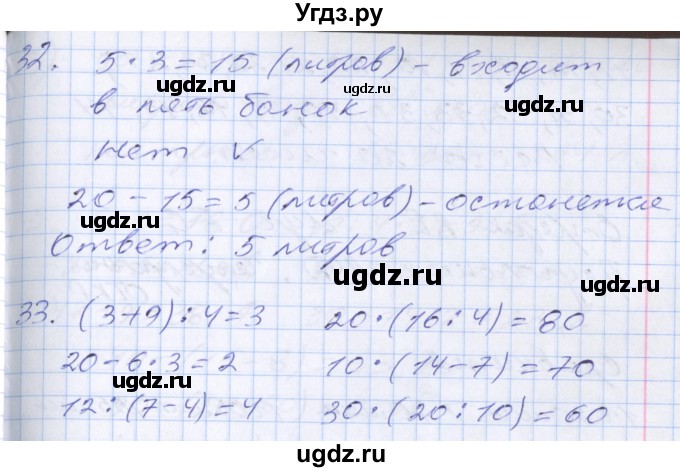 Угдз.ру
32. 5 · 3 = 15 (литров) - входит
ugdz.ru ugdz.ru ugdz.ru
в пять банок
ugdz.ru
нет ✓
20 - 15 = 5 (литров) - останется
ugdz.ru ugdz.ru
Ответ: 5 литров
ugdz.ru ugdz.ru
33. (3+9) : 4 = 3 20 · (16 : 4) = 80
ugdz.ru
20 - 6 · 3 = 2 10 · (14 - 7) = 70
ugdz.ru
12 : (7 - 4) = 4 30 · (20 : 10) = 60
ugdz.ru ugdz.ru